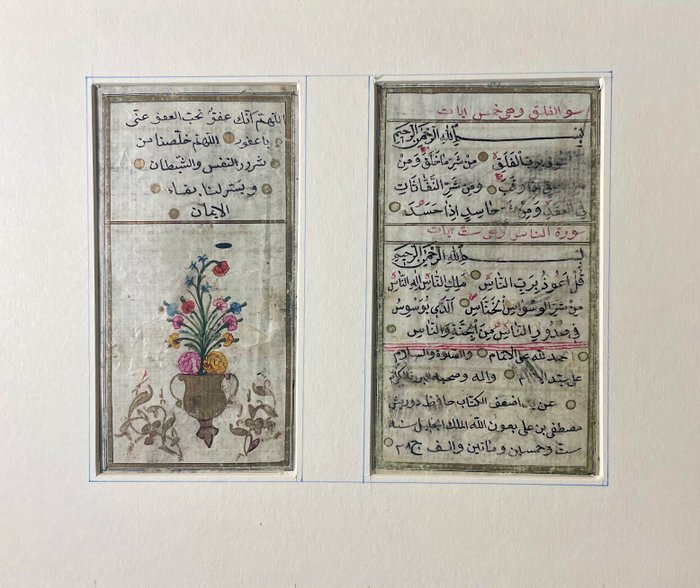 سورة الفلق وهى خمس ايات
بسم الله الرحمن الرحيم
اعوذ برب الفلق من شر ما خلق ومن
شر غاسق اذا وقب ومن شر النفاثات
فى العقد ومن شر حاسد اذا حسد
سورة الناس وهى ست ايات
بسم الله الرحمن الرحيم
قل اعوذ برب الناس ملك الناس اله الناس
من شر الوسواس الخناس الذى يوسوس
فى صدور الناس من الجنة والناس
الحمد لله على الاتمام والصلوة والسلام
على سيد الانام واله وصحبه الكرام
عن يد اضعف الكتاب حافظ
مصطفى بن على بعون الله الملك الجليل سنه
ست وخمسين ومأتين والف
اللهم انك عفو تحب العفو فاعف عنى
يا غفور اللهم خلصنا من
شرور النفس والشيطان
ويسر لنا بقاء
الايمان